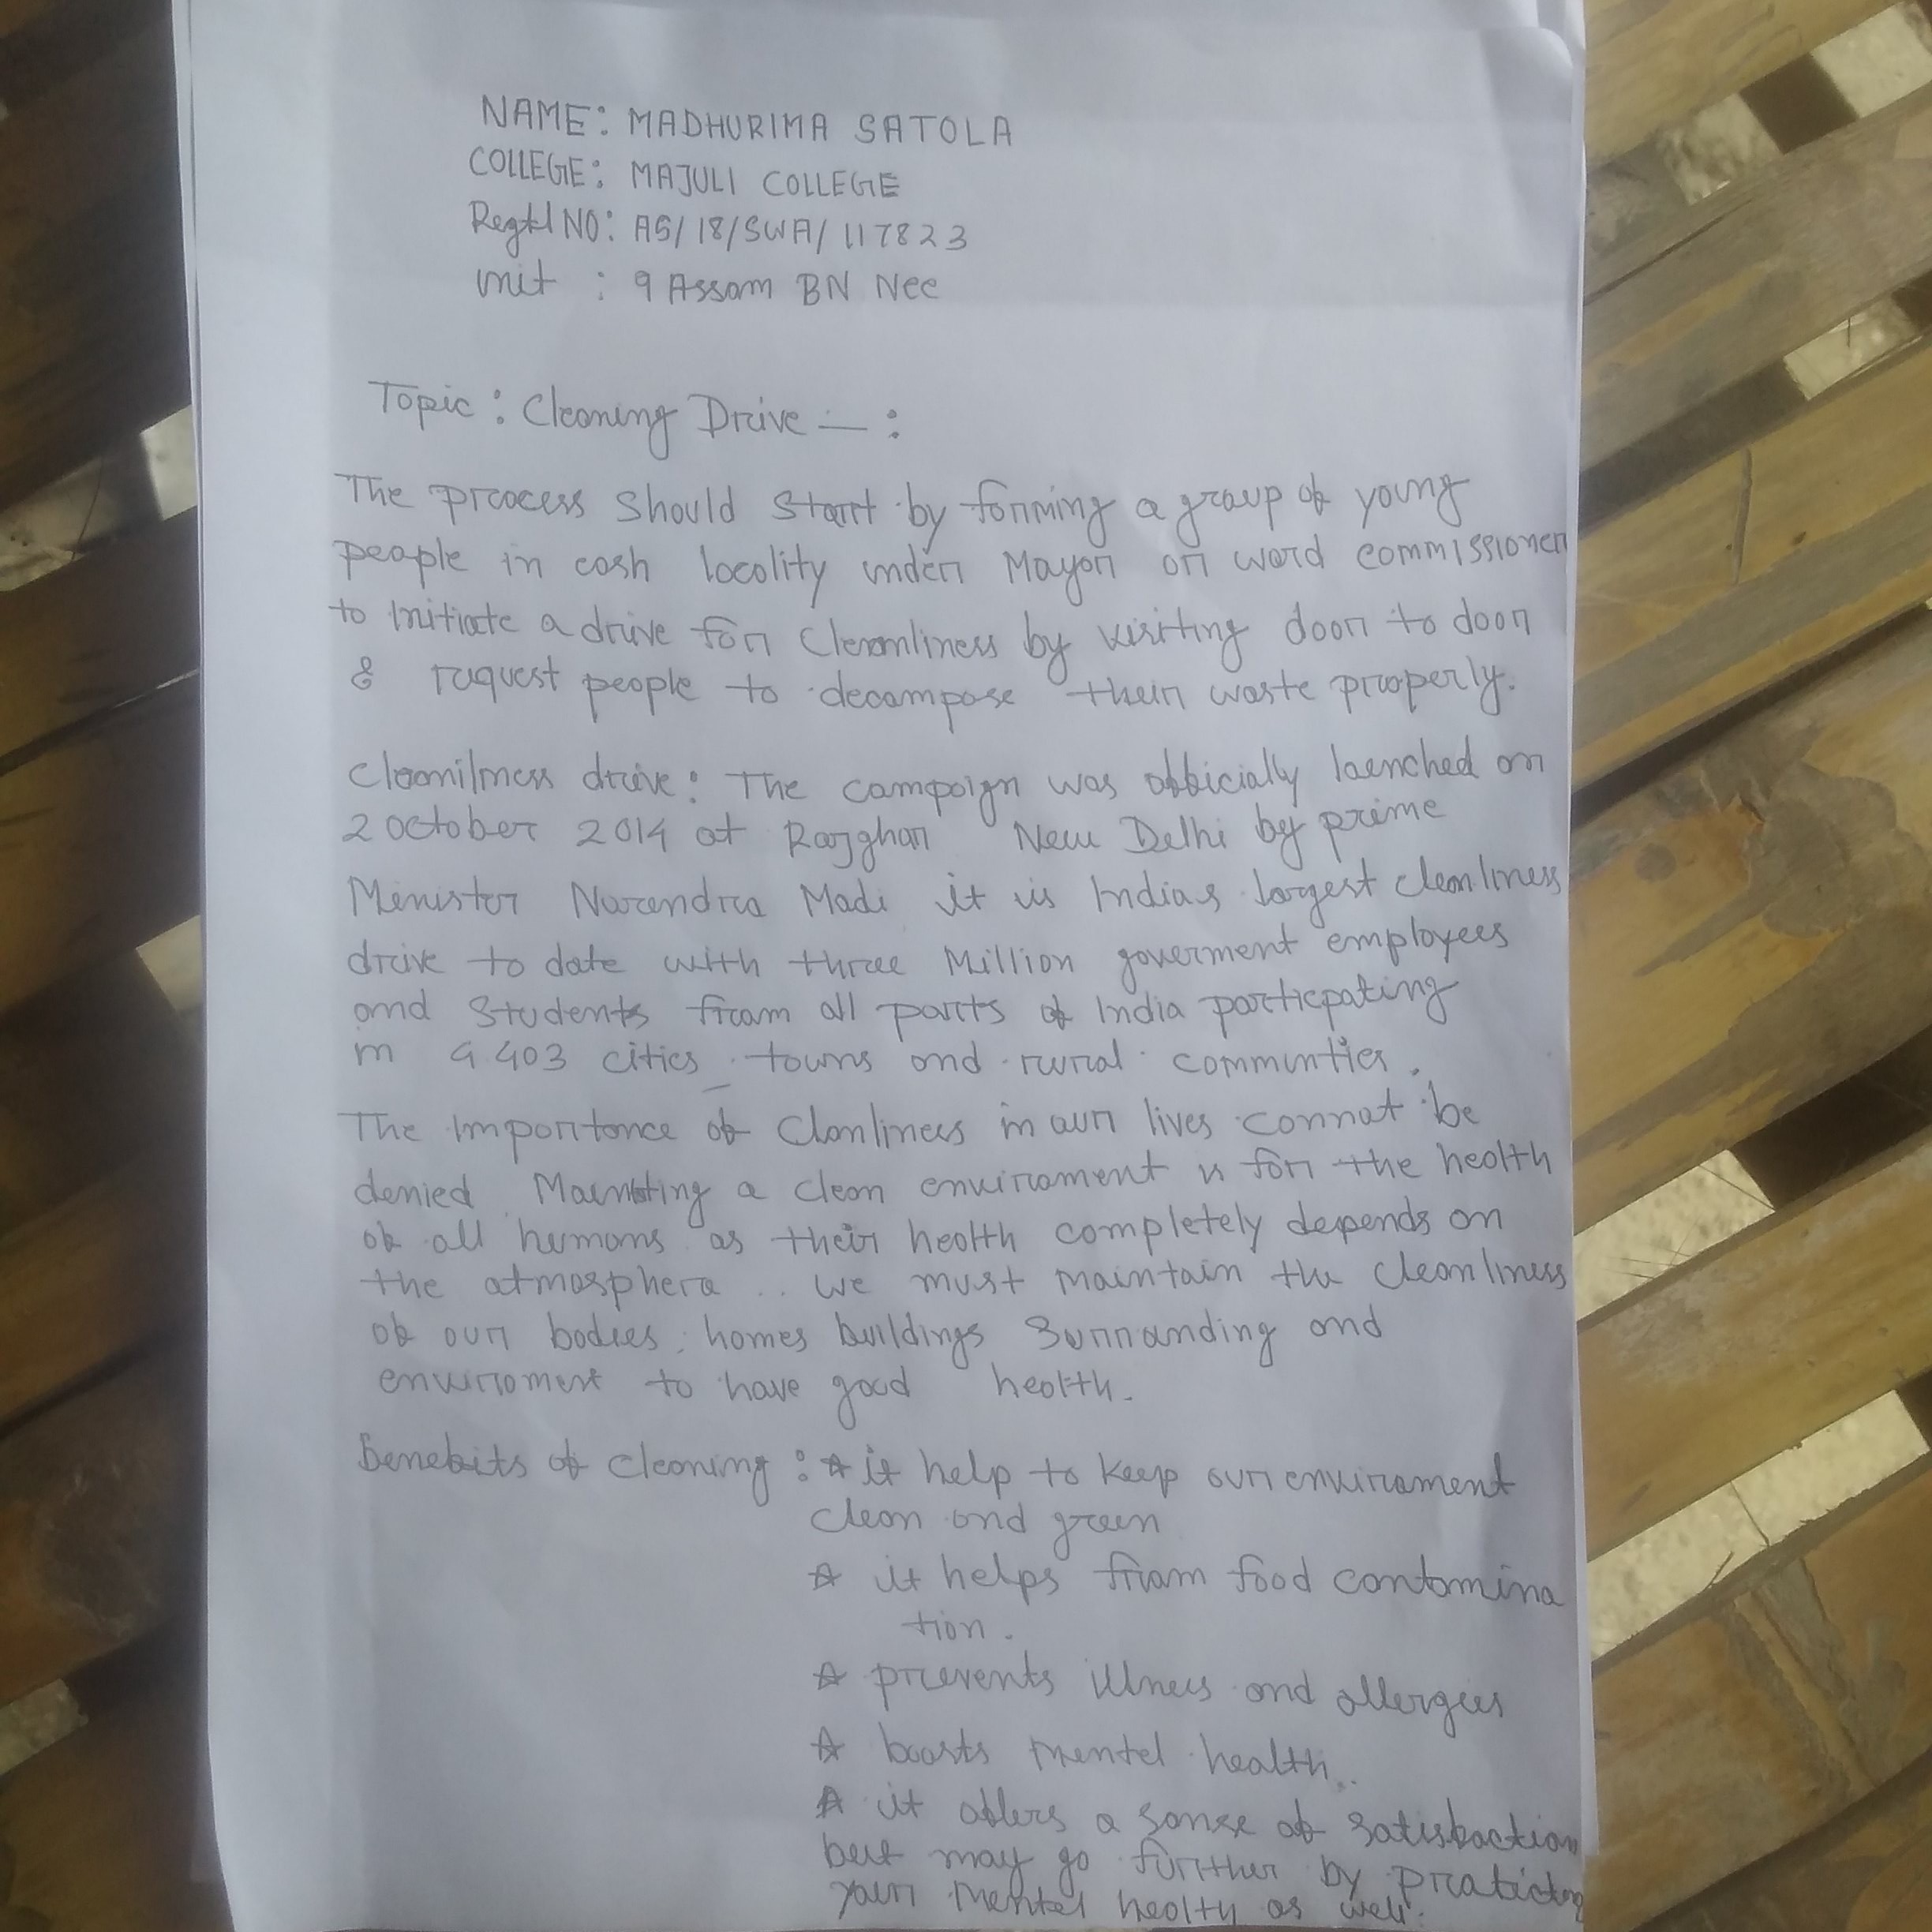 NAME: MADHURIMA SATOLA
COLLEGE: MAJULI COLLEGE
Regtl NO: AS/18/SWA/117823
unit : 9 Assam BN Ncc
Topic: Cleaning Drive — :
The process should start by forming a group of young
people in each locality under Mayor or ward commissioner
to initiate a drive for Cleanliness by visiting door to door
& request people to decompose their waste properly.
Cleanilness drive: The campaign was officially laenched on
2 October 2014 at Rajghar New Delhi by prime
Minister Narendra Modi it is Indias largest cleanliness
drive to date with three Million goverment employees
and students from all parts of India particpating
in 4.403 cities towns and rural communties.
The importance of Clanliness in our lives cannot be
denied. Mainting a clean envirament is for the health
of all humans as their health completely depends on
the atmosphera .. we must maintain the cleanliness
of our bodies, homes buildings surranding and
enviroment to have good health.
Benefits of cleaning : ☆ it help to keep our envirament
clean and green
☆ it helps from food contamina
tion.
☆ prevents illness and allergies
☆ boosts mentel health..
☆ it offers a sense of satisfaction
but may go further by praticing
your mental healty as well.